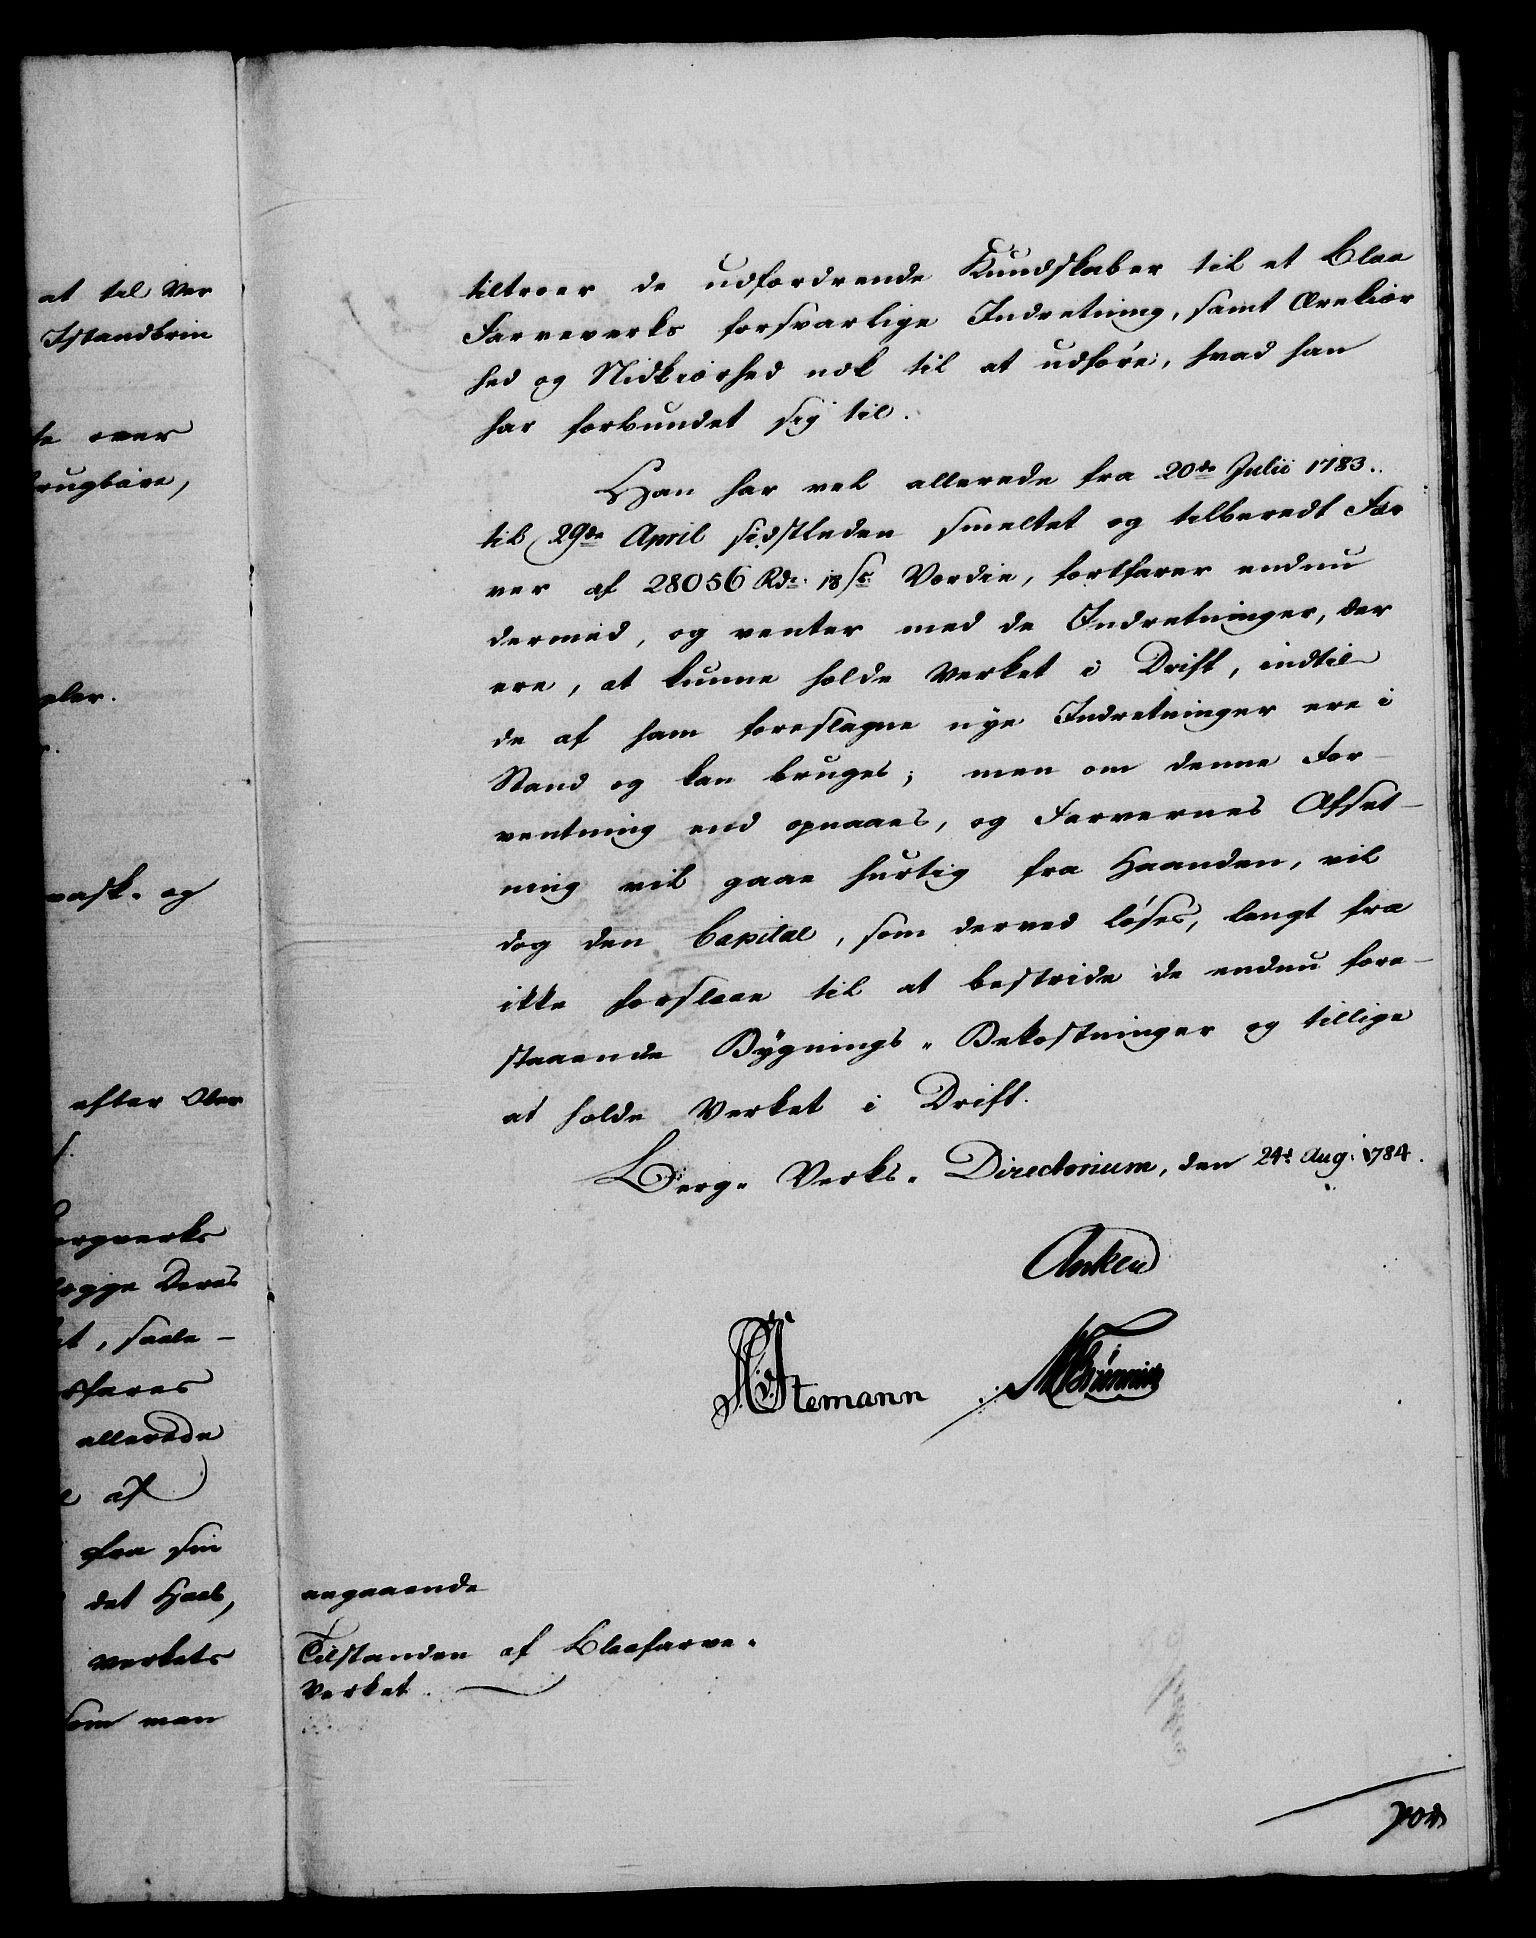 at til Ver
Istandbrin
te over
rugbare,
gler.
vask- og
efter Ober
ergverks
legge Deres
et, saale-
sfares
allerede
af
fra sin
det Haab,
verkets
som man
tiltroer de udfordrende Kundskaber til et Blaa
Farveverks forsvarlige Indretning, samt Ærekiær
hed og Nidkiærhed nok til at udføre, hvad han
har forbundet sig til.
Han har vel allerede fra 20de Julii 1783.
til 29de April sidstleden smeltet og tilberedt Far
ver af 28056 Rdr. 18 s. Værdie, fortfarer endnu
dermed, og venter med de Indretninger, der
ere, at kunne holde Verket i Drift, indtil
de af ham foreslagne nye Indretninger ere i
Stand og kan bruges; men om denne For-
ventning end opnaaes, og Farvernes Afset-
ning vil gaae hurtig fra Haanden, vil
dog den Capital, som derved løses, langt fra
ikke forslaae til at bestride de endnu fore-
staaende Bygnings- Bekostninger og tillige
at holde Verket i Drift.
Berg- Verks- Directorium, den 24d Aug. 1784.
Anker
Stemann MBrünnich
angaaende
Tilstanden af Blaafarve-
Verket.